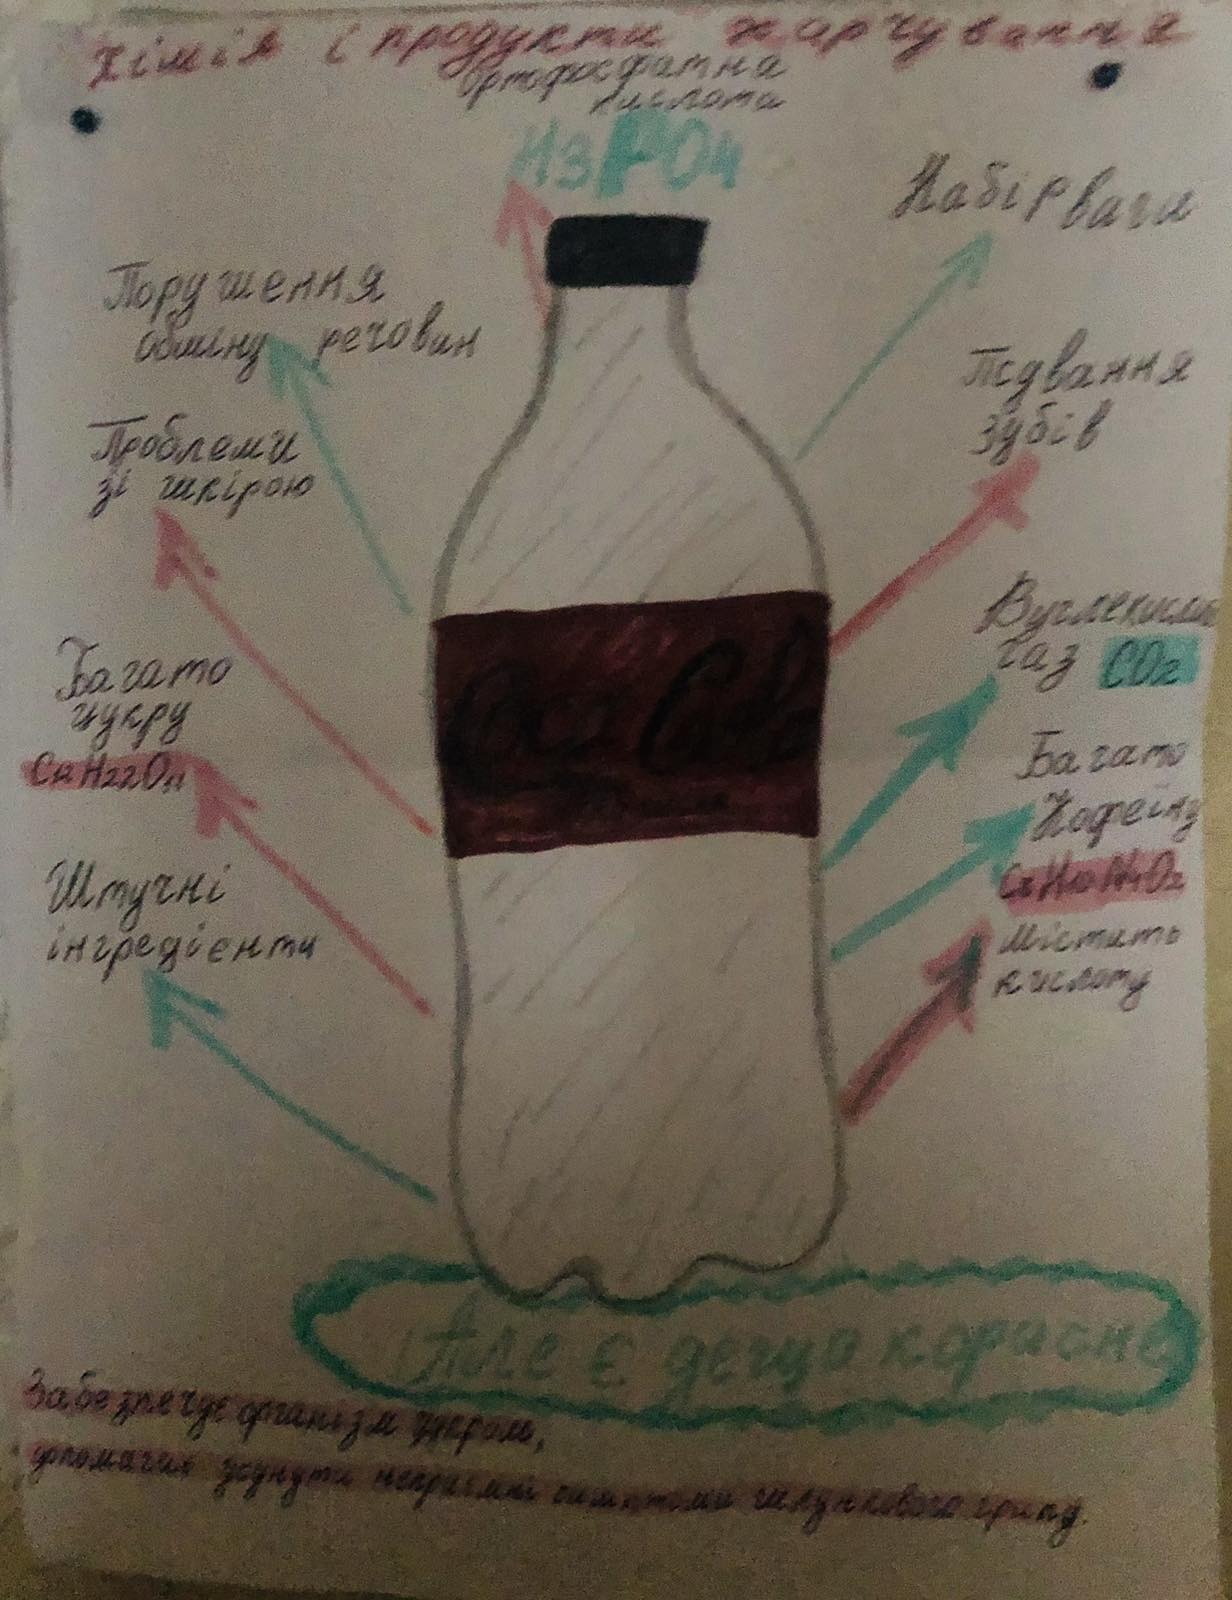 Хімія і продукти харчування
Ортофосфатна
кислота
H3PO4
Набір ваги
Порушення
обміну речовин
Псування
зубів
Проблеми
зі шкірою
Вуглекислий
газ CO2
Багато
цукру
C12H22O11
Багато
Кофеїну
C8H10N4O2
Штучні
інгредієнти
Містить
кислоту
Coca Cola
Але є дещо корисне
Забезпечує організм цукром,
допомагає усунути неприємні симптоми шлункового грипу.